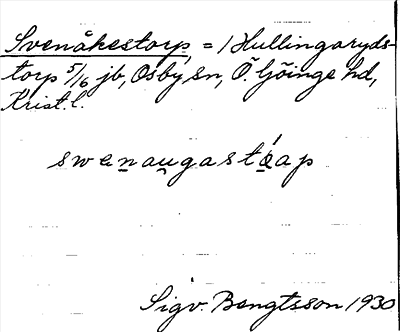 Svenåkestorp, = 1 Hullingaryds-
torp 5/16 jb, Osby sn, Ö. Göinge hd,
Krist. l.
swenaugastóap
Sigv. Bengtsson 1930